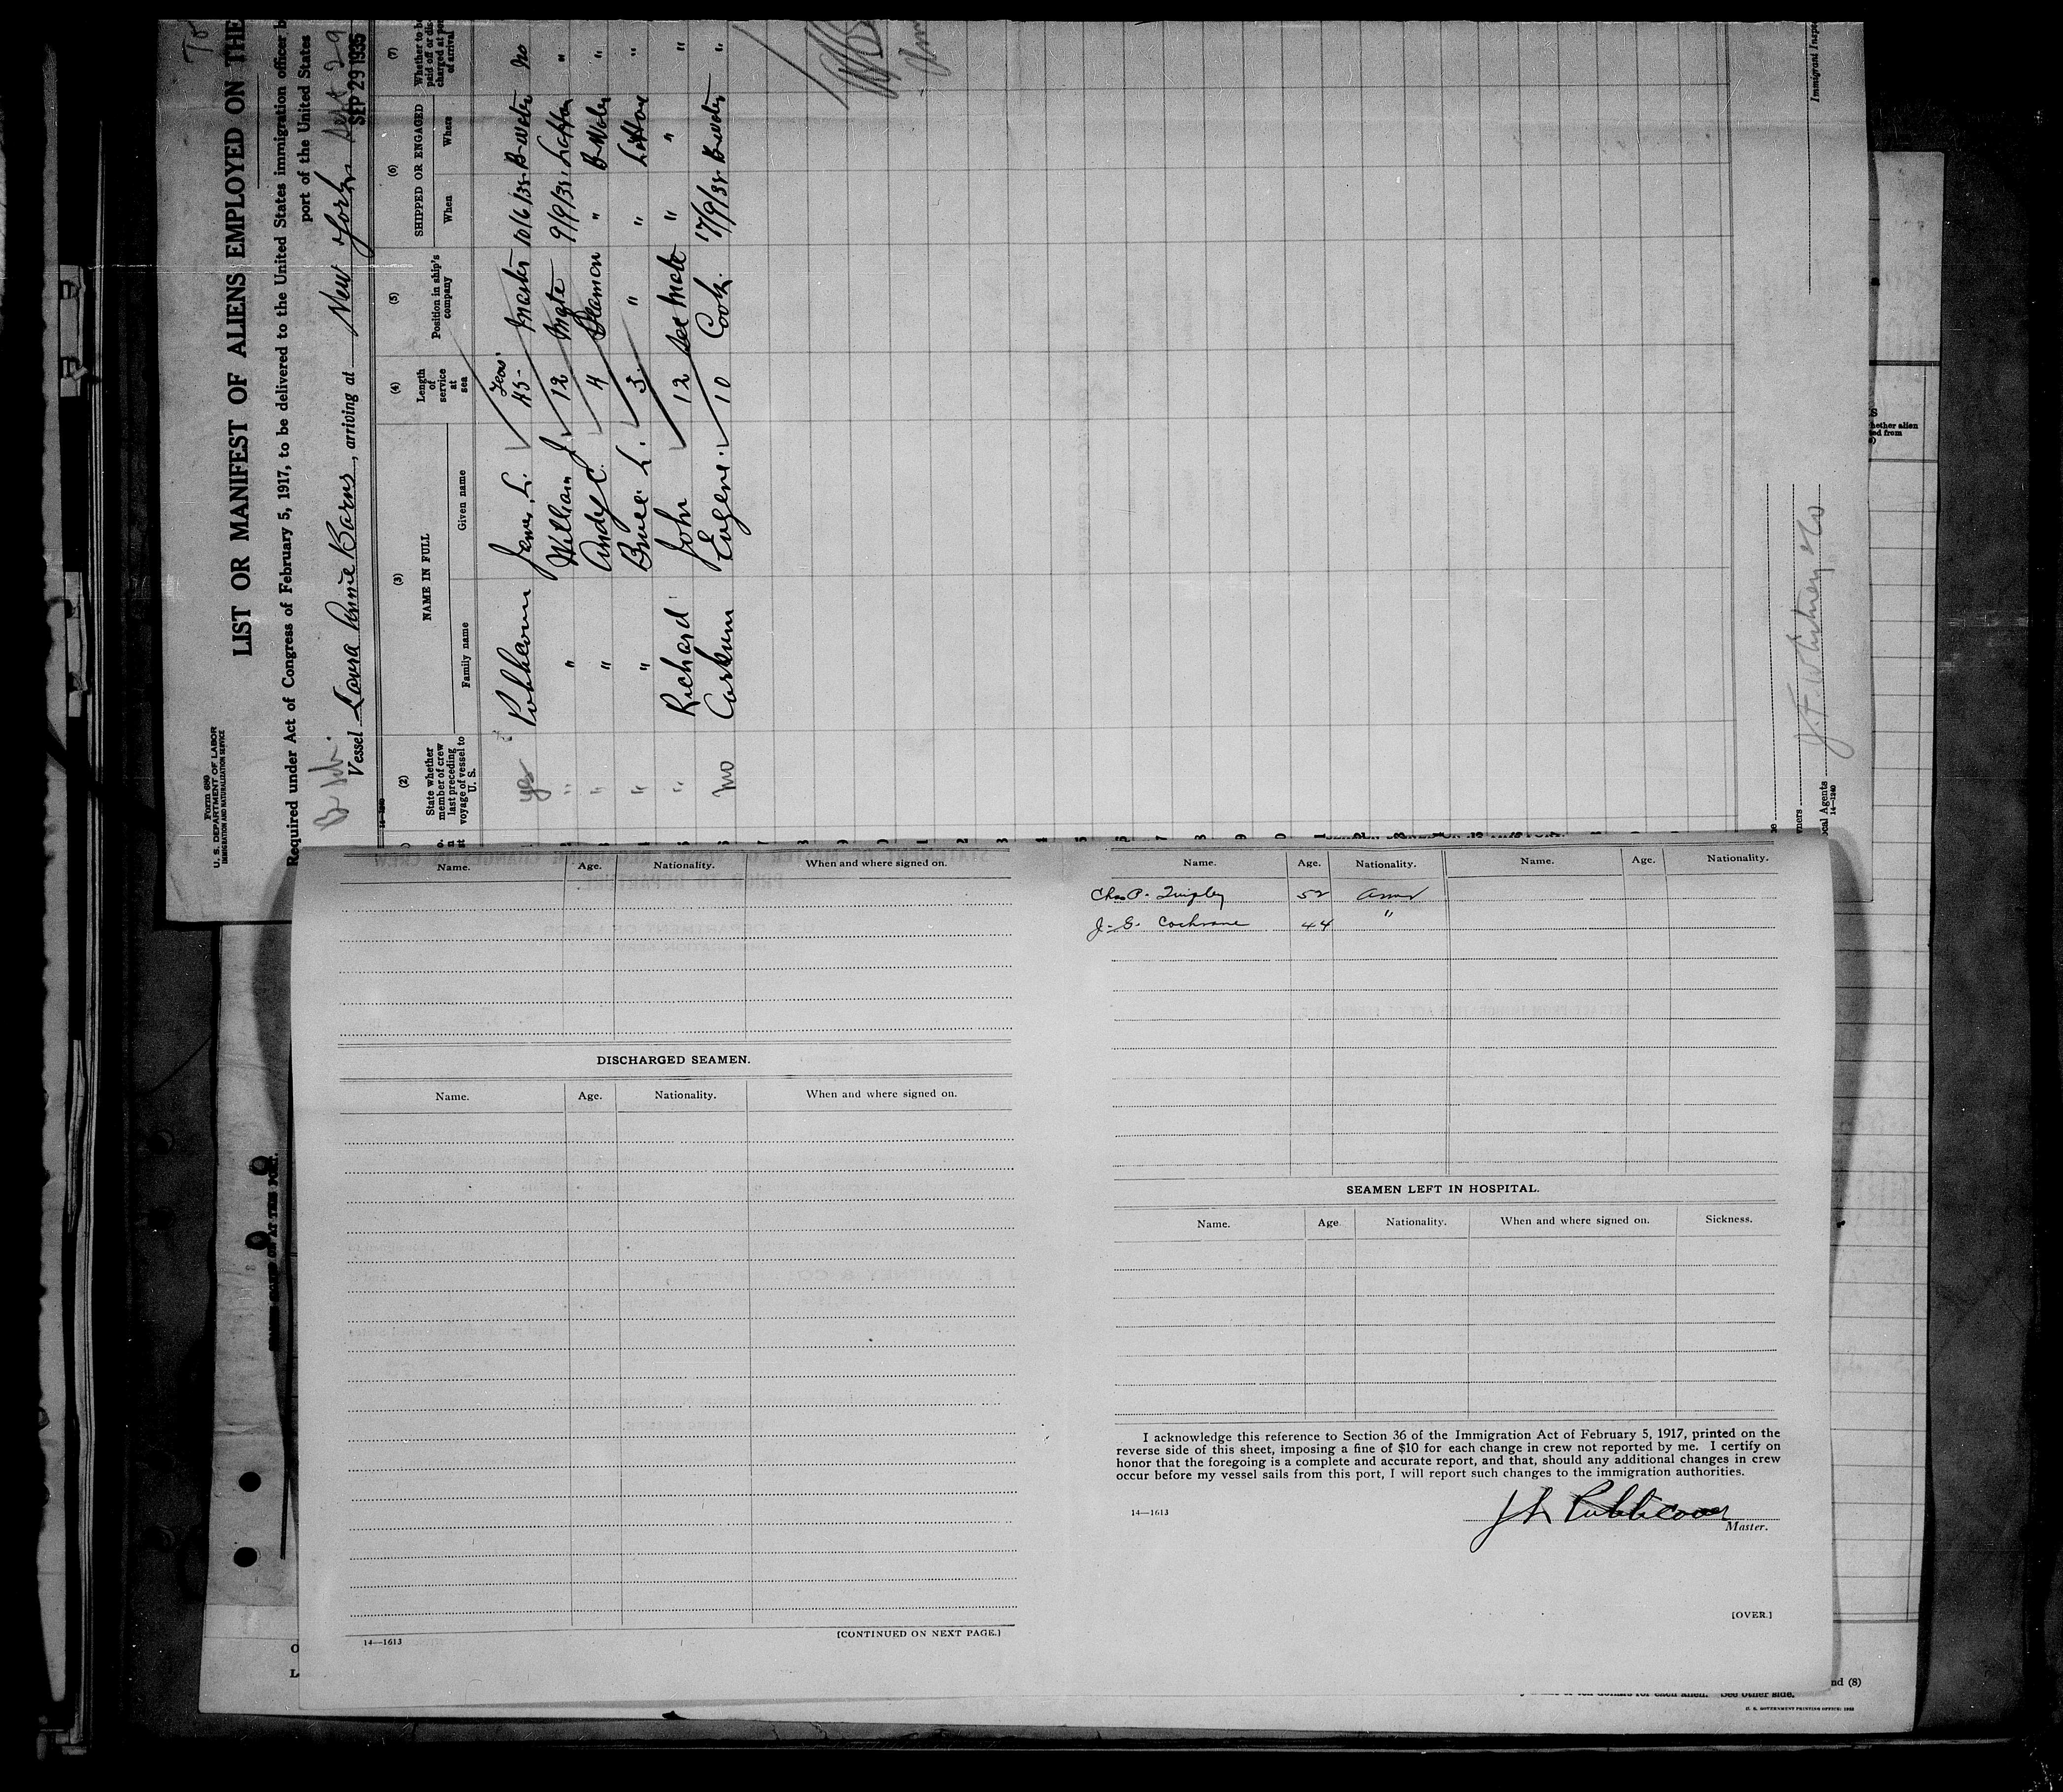 Form 680
U. S. DEPARTMENT OF LABOR
IMMIGRATION AND NATURALIZATION SERVICE
LIST OR MANIFEST OF ALIENS EMPLOYED ON THE
Required under Act of Congress of February 5, 1917, to be delivered to the United States immigration officer
port of the United States
Vessel Laura Annie Barns, arriving at New York Sept 29
SEP 29 1935
(2) (3) (4) (5) (6) (7)
State whether member of crew last preceding voyage of vessel to U. S.
NAME IN FULL
Family name Given name
Length of service at sea
Position in ship's company
SHIPPED OR ENGAGED
When Where
Whether to be paid off or discharged at port of arrival
yes Publicover James L. 45 Years Master 10/6/35 B-Water no
" " William J. 12 Mate 9/9/35 LaHave "
" " Andy C. 4 Seaman " B-Water "
" " Bruce L. 3 " " LaHave "
" Richard John 12 Sec Mate " " "
no Corkum Eugene 10 Cook 17/9/35 B-Water "
J. F. Whitney & Co
Local Agents
14—1240
Immigrant Inspe
Name. Age. Nationality. When and where signed on.
DISCHARGED SEAMEN.
Name. Age. Nationality. When and where signed on.
14—1613
[CONTINUED ON NEXT PAGE.]
Name. Age. Nationality. Name. Age. Nationality.
Chas P. Quigley 52 Amer
J. G. Cochrane 44 "
SEAMEN LEFT IN HOSPITAL.
Name. Age. Nationality. When and where signed on. Sickness.
I acknowledge this reference to Section 36 of the Immigration Act of February 5, 1917, printed on the
reverse side of this sheet, imposing a fine of $10 for each change in crew not reported by me. I certify on
honor that the foregoing is a complete and accurate report, and that, should any additional changes in crew
occur before my vessel sails from this port, I will report such changes to the immigration authorities.
14—1613
J L Publicover
Master.
[OVER.]
nd (8)
See other side.